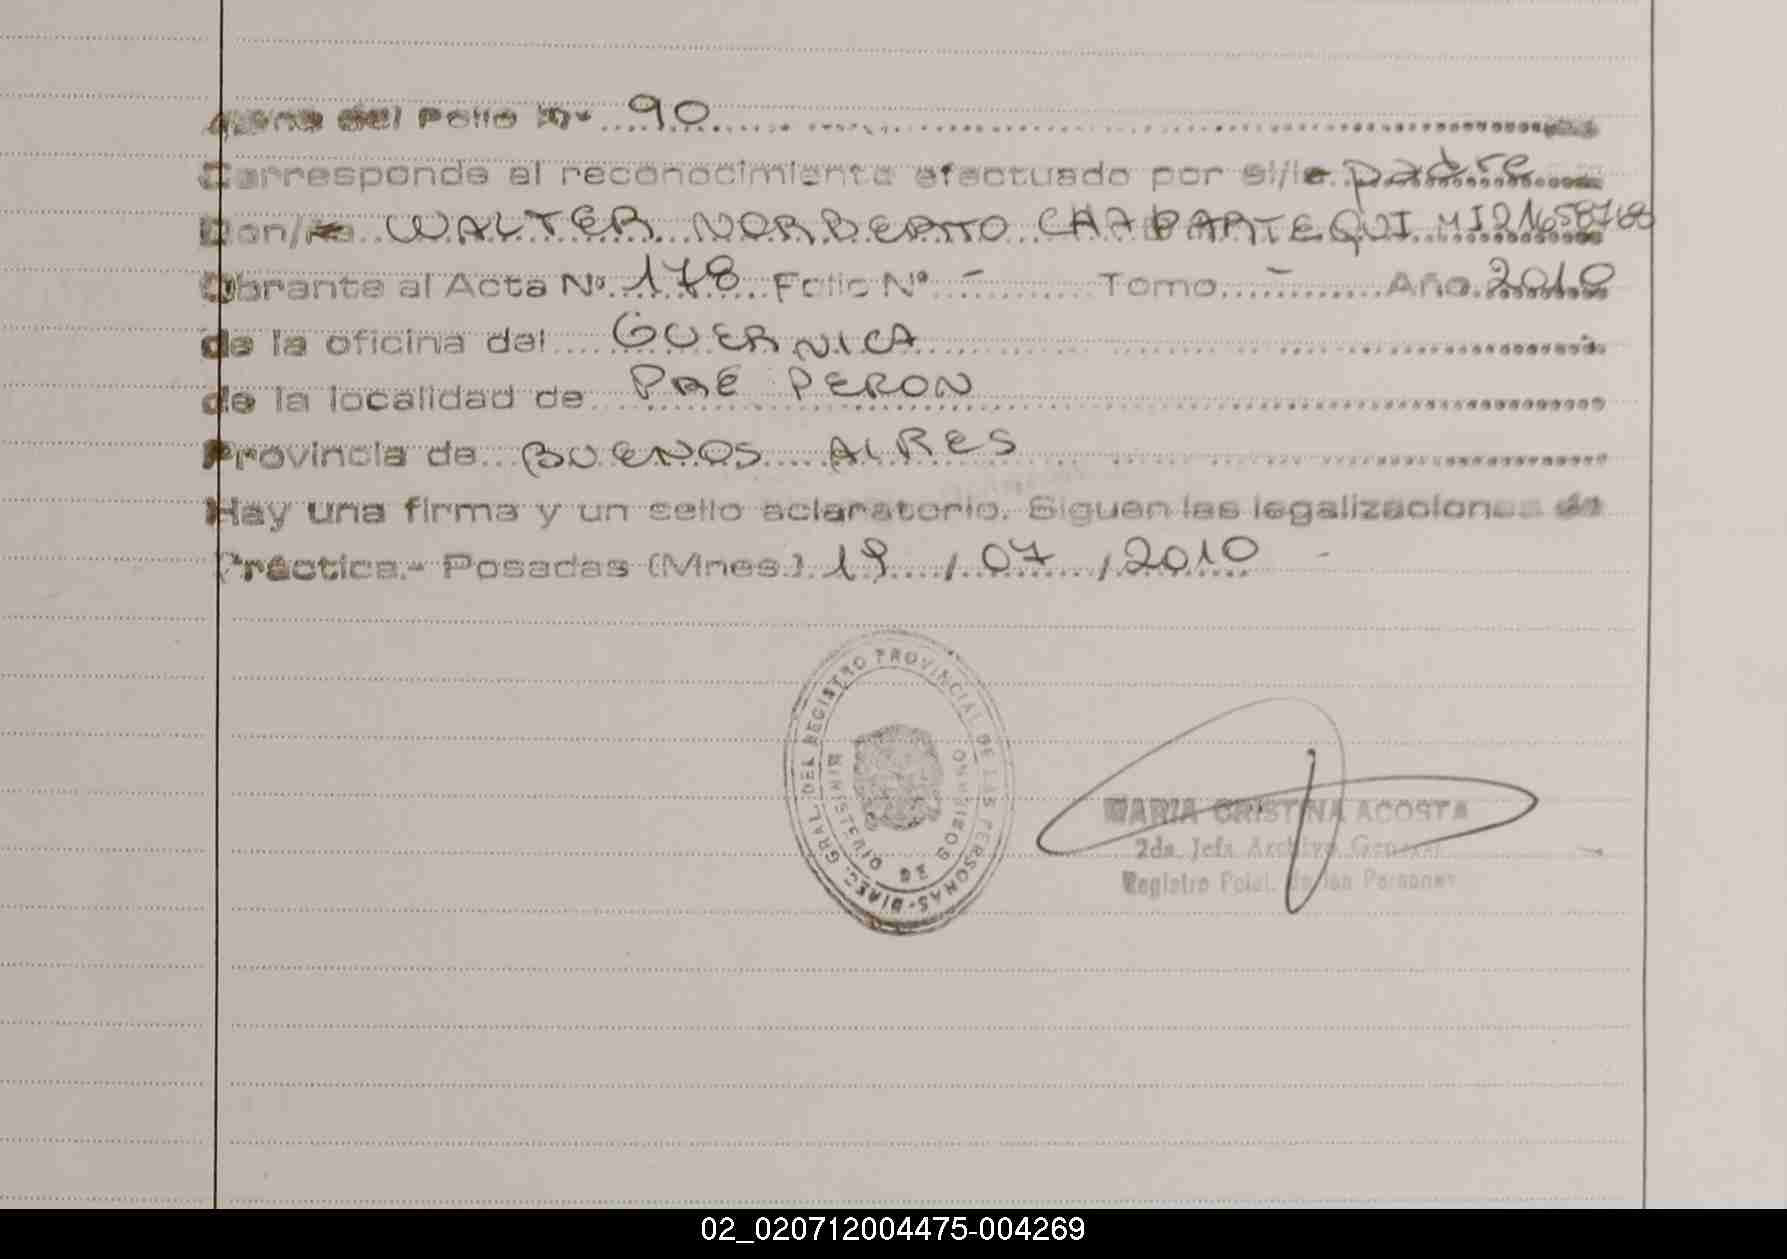 del Folio Nº 90
Corresponde al reconocimiento efectuado por el/la padre
Don/ña WALTER NORBERTO CHAPARTEGUI MI 21658768
Obrante al Acta Nº 178 Folio Nº - Tomo - Año 2010
de la oficina del GUERNICA
de la localidad de PTE PERON
Provincia de BUENOS AIRES
Hay una firma y un sello aclaratorio. Siguen las legalizaciones de
Práctica.- Posadas (Mnes.) 19 / 07 / 2010 -
DIREC. GRAL. DEL REGISTRO PROVINCIAL DE LAS PERSONAS
MINISTERIO DE GOBIERNO
MARIA CRISTINA ACOSTA
2da Jefa Archivo General
Registro Pcial. de las Personas
02_020712004475-004269